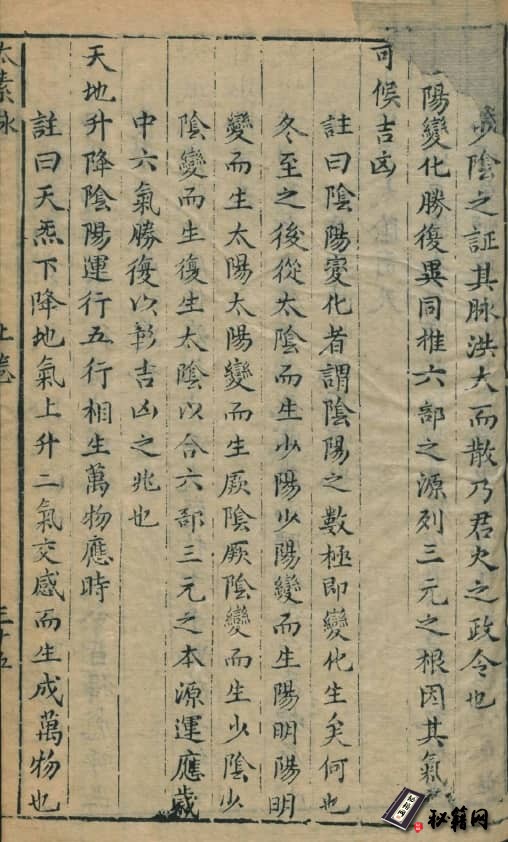 少陰之証其脉洪大而散乃君火之政令也
陽變化勝復異同推六部之源列三元之根因其氣
可候吉凶
註曰陰陽變化者謂陰陽之數極即變化生矣何也
冬至之後從太陰而生少陽少陽變而生陽明陽明
變而生太陽太陽變而生厥陰厥陰變而生少陰少
陰變而生復生太陰以合六部三元之本源運應歲
中六氣勝復以彰吉凶之兆也
天地升降陰陽運行五行相生萬物應時
註曰天炁下降地氣上升二氣交感而生成萬物也
太素脉 上卷 三十五
秘籍网